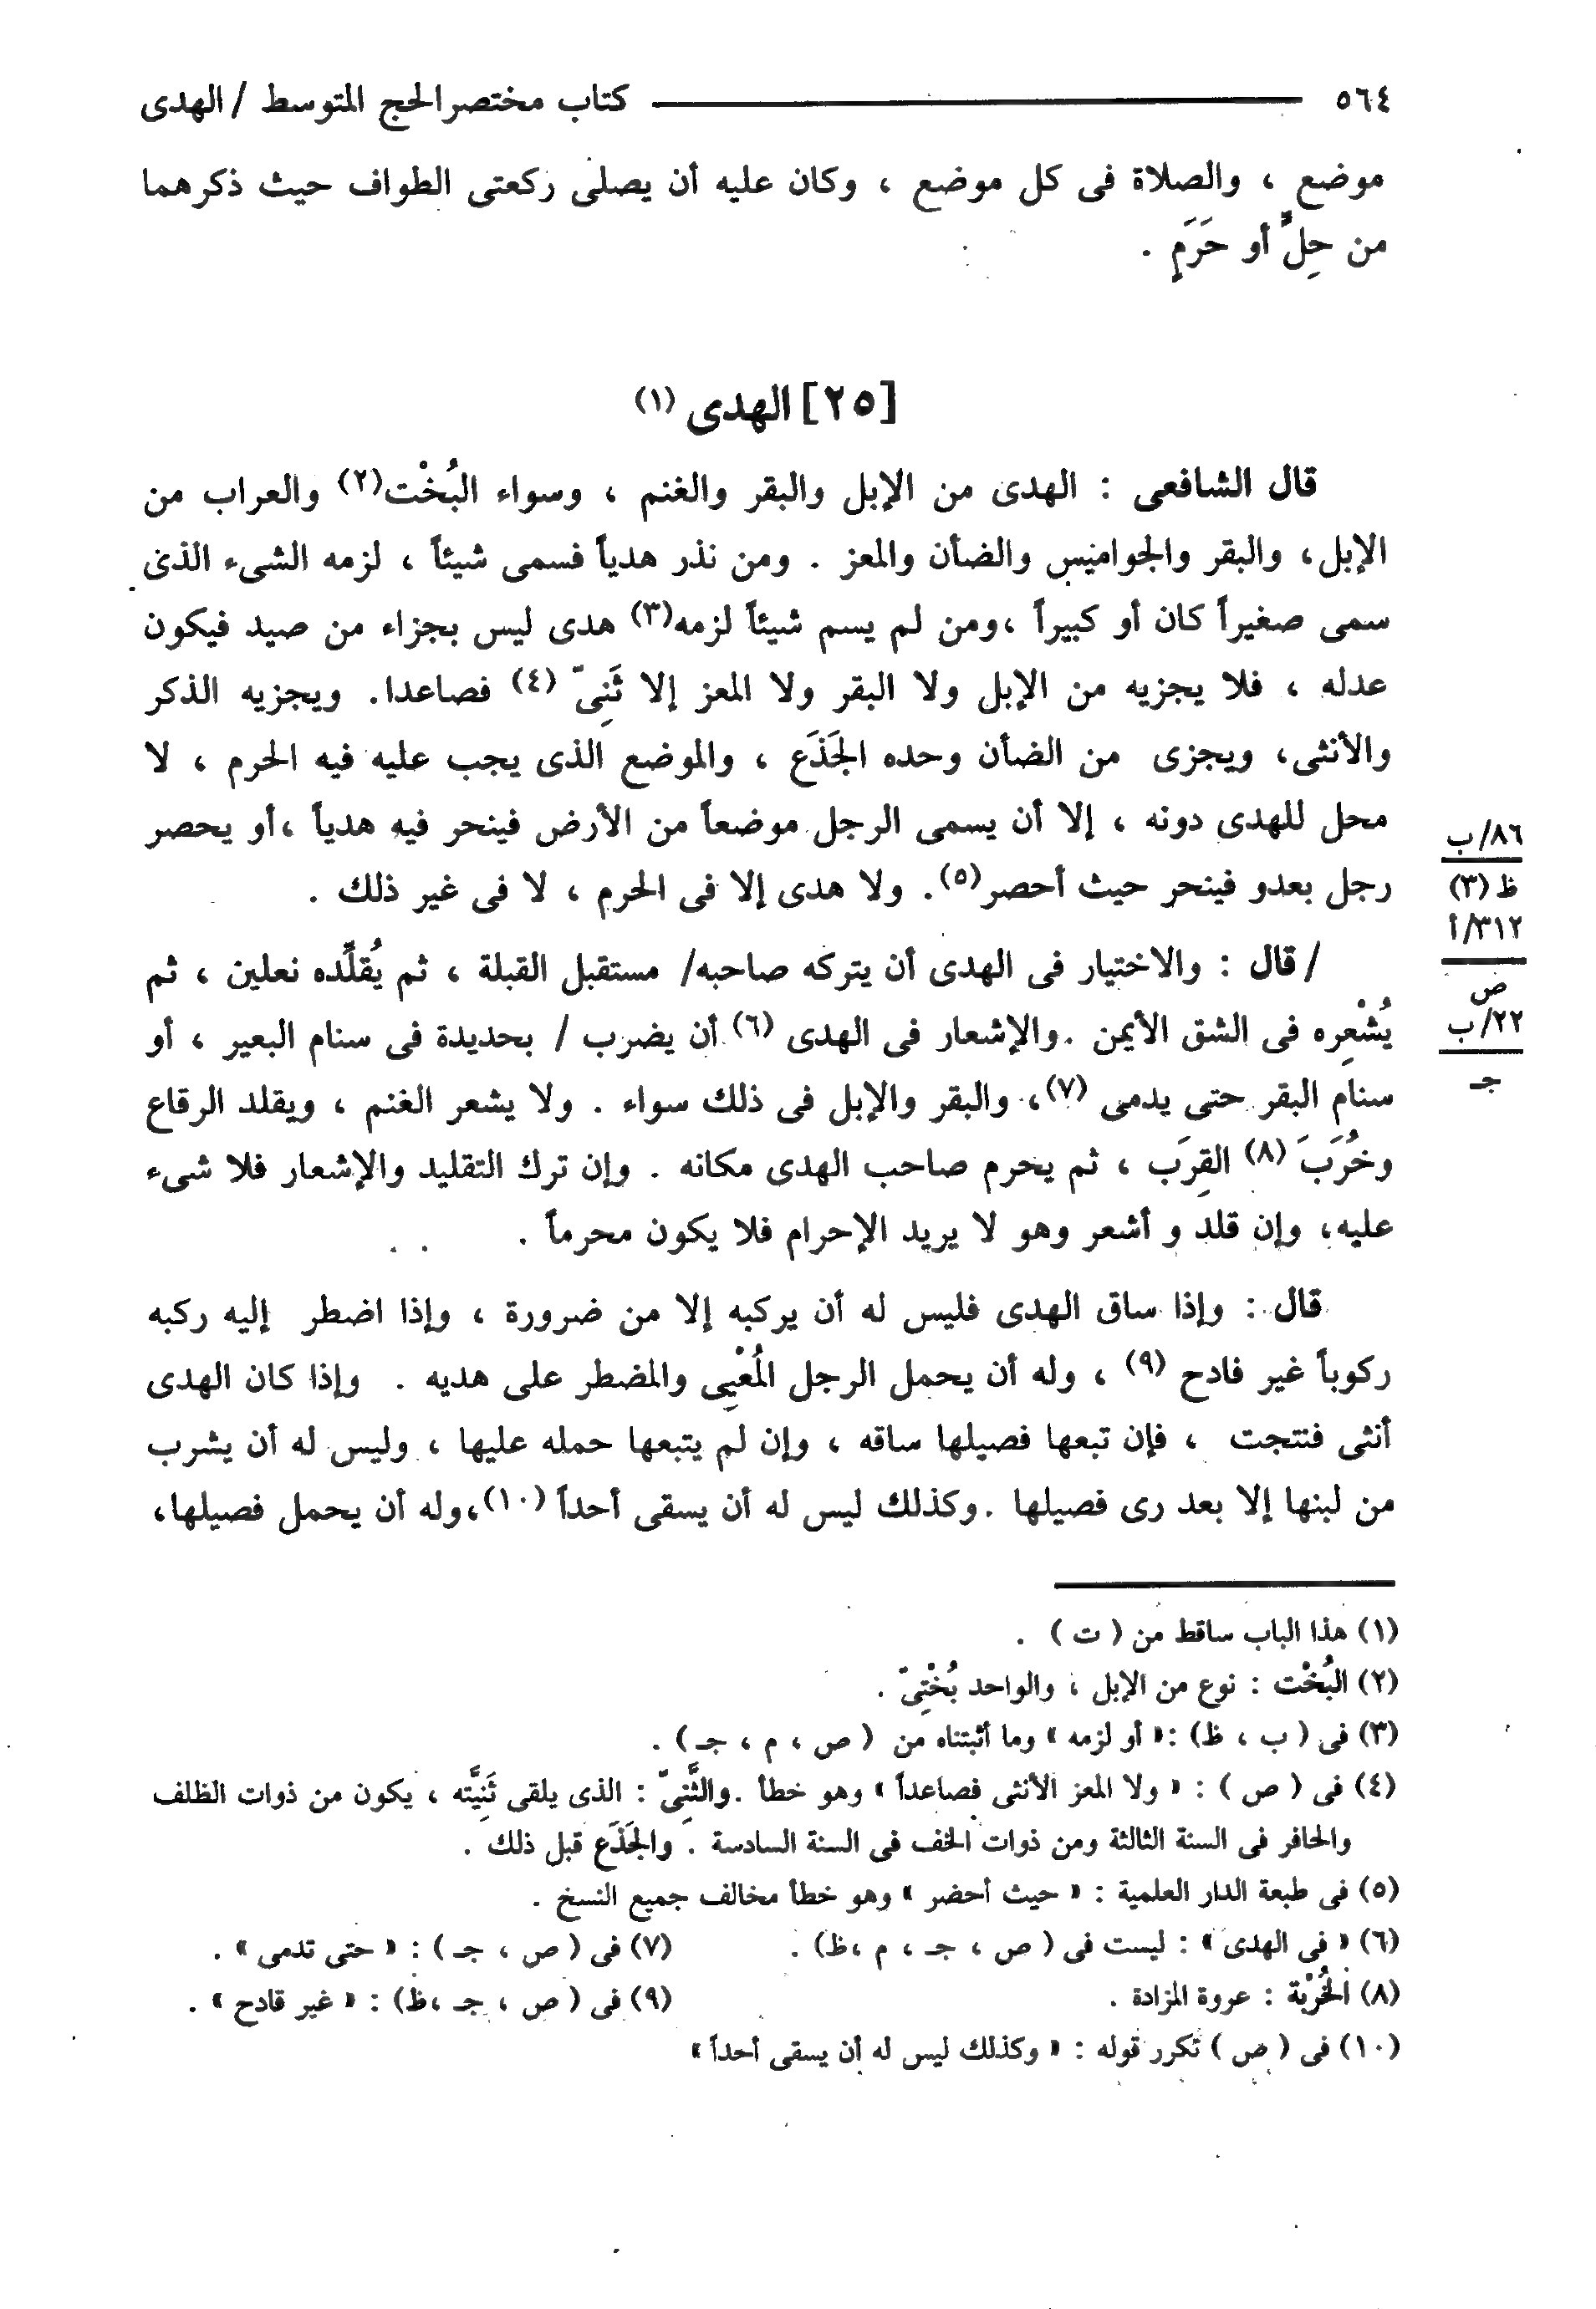 ٥٦٤ كتاب مختصر الحج المتوسط / الهدى
موضع ، والصلاة فى كل موضع ، وكان عليه أن يصلى ركعتى الطواف حيث ذكرهما
من حِلٍّ أو حَرَمٍ .
[٢٥] الهدى (١)
قال الشافعى : الهدى من الإبل والبقر والغنم ، وسواء البُخْت(٢) والعراب من
الإبل، والبقر والجواميس والضأن والمعز . ومن نذر هدياً فسمى شيئاً ، لزمه الشىء الذى
سمى صغيراً كان أو كبيراً ،ومن لم يسم شيئاً لزمه(٣) هدى ليس بجزاء من صيد فيكون
عدله ، فلا يجزيه من الإبل ولا البقر ولا المعز إلا ثَنِىّ (٤) فصاعدا. ويجزيه الذكر
والأنثى، ويجزى من الضأن وحده الجَذَع ، والموضع الذى يجب عليه فيه الحرم ، لا
محل للهدى دونه ، إلا أن يسمى الرجل موضعاً من الأرض فينحر فيه هدياً ،أو يحصر
رجل بعدو فينحر حيث أحصر(٥). ولا هدى إلا فى الحرم ، لا فى غير ذلك .
/ قال : والاختيار فى الهدى أن يتركه صاحبه/ مستقبل القبلة ، ثم يُقلِّده نعلين ، ثم
يُشْعِره فى الشق الأيمن .والإشعار فى الهدى (٦) أن يضرب / بحديدة فى سنام البعير ، أو
سنام البقر حتى يدمى (٧)، والبقر والإبل فى ذلك سواء . ولا يشعر الغنم ، ويقلد الرقاع
وخُرَبَ (٨) القِرَب ، ثم يحرم صاحب الهدى مكانه . وإن ترك التقليد والإشعار فلا شىء
عليه، وإن قلد و أشعر وهو لا يريد الإحرام فلا يكون محرماً .
قال : وإذا ساق الهدى فليس له أن يركبه إلا من ضرورة ، وإذا اضطر إليه ركبه
ركوباً غير فادح (٩) ، وله أن يحمل الرجل المُعْيِى والمضطر على هديه . وإذا كان الهدى
أنثى فنتجت ، فإن تبعها فصيلها ساقه ، وإن لم يتبعها حمله عليها ، وليس له أن يشرب
من لبنها إلا بعد رى فصيلها .وكذلك ليس له أن يسقى أحداً (١٠)،وله أن يحمل فصيلها،
٨٦/ب
ظ (٣)
٣١٢/أ
ص
٢٢/ب
جـ
(١) هذا الباب ساقط من ( ت ) .
(٢) البُخْت : نوع من الإبل ، والواحد بُخْتِىّ .
(٣) فى ( ب ، ظ) :« أو لزمه » وما أثبتناه من ( ص ، م ، جـ ) .
(٤) فى ( ص ) : « ولا المعز الأنثى فصاعداً » وهو خطأ .والثَّنِىّ : الذى يلقى ثَنِيَّته ، يكون من ذوات الظلف
والحافر فى السنة الثالثة ومن ذوات الخف فى السنة السادسة . والجَذَع قبل ذلك .
(٥) فى طبعة الدار العلمية : « حيث أحضر » وهو خطأ مخالف جميع النسخ .
(٦) « فى الهدى » : ليست فى ( ص ، جـ ، م ،ظ) . (٧) فى ( ص ، جـ ) : « حتى تدمى » .
(٨) الخُرْبَة : عروة المزادة . (٩) فى ( ص ، جـ ،ظ) : « غير قادح » .
(١٠) فى ( ص ) تكرر قوله : « وكذلك ليس له أن يسقى أحداً »